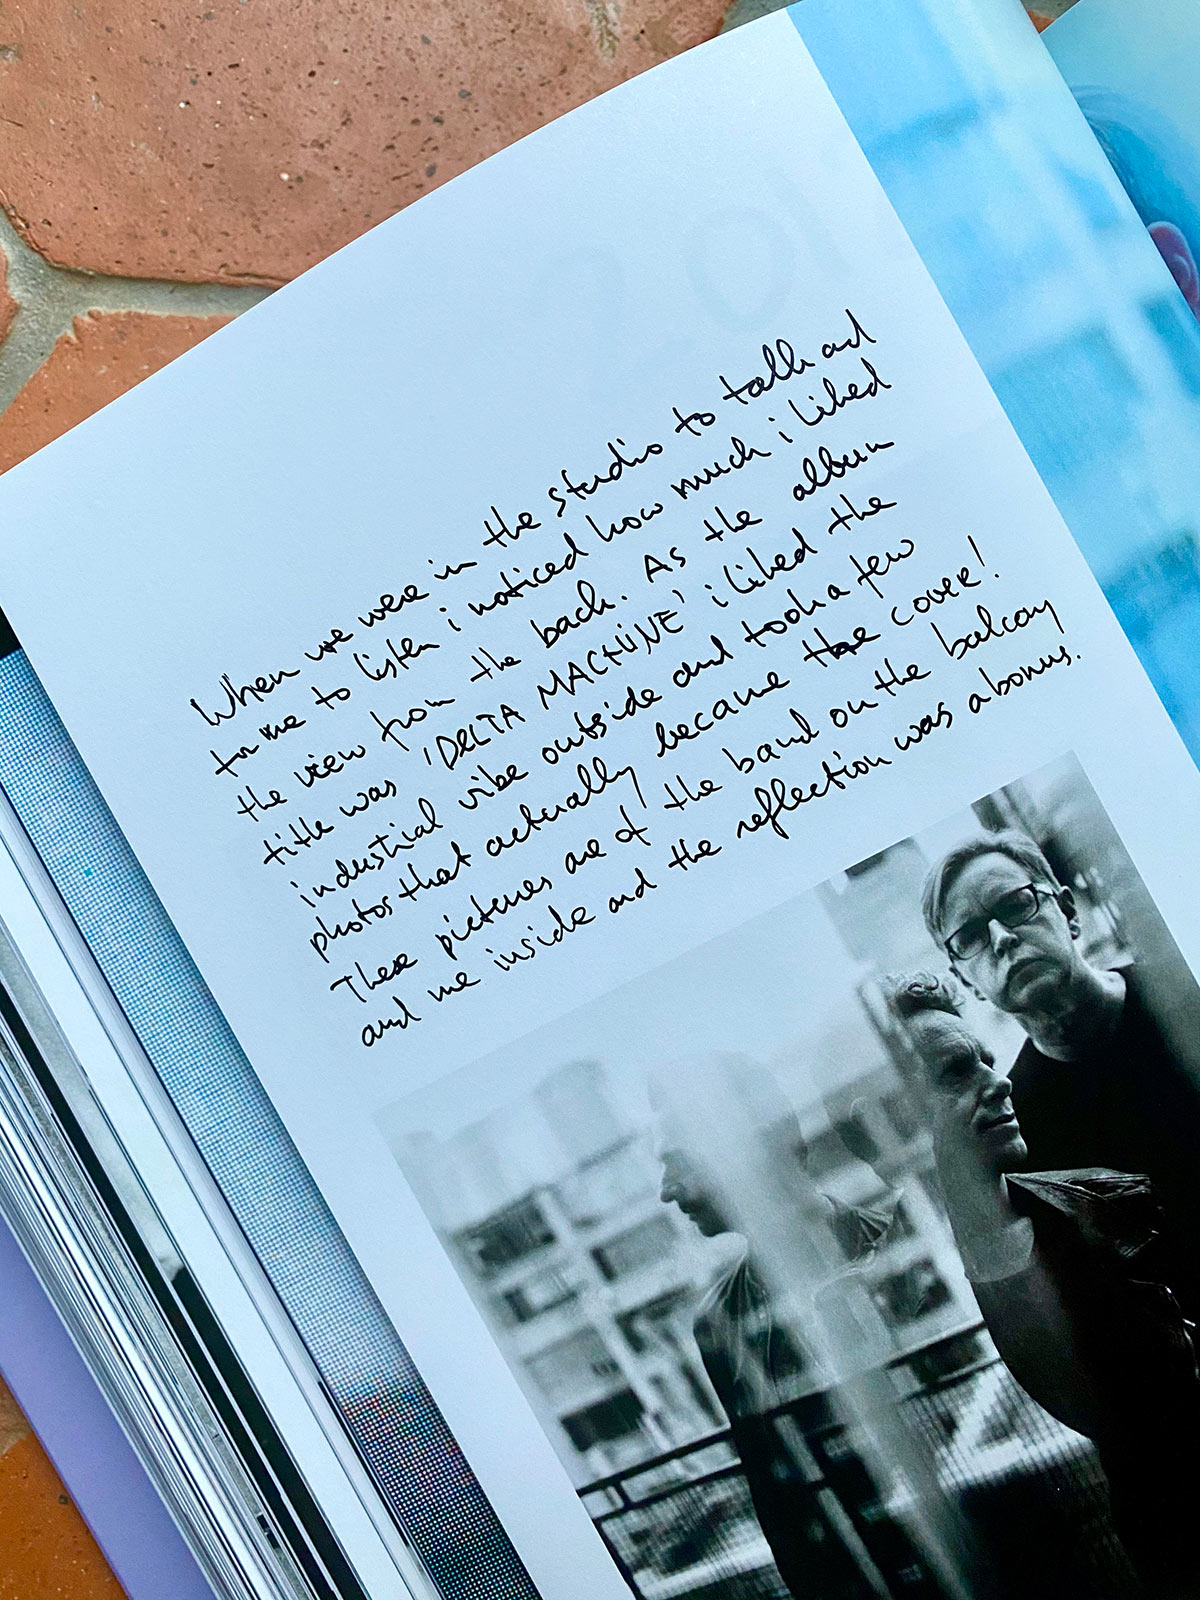 When we were in the studio to talk ad
for me to listen i noticed how much i liked
the view from the back. As the album
title was 'DELTA MACHINE' i liked the
industrial vibe outside and took a few
photos that actually became the cover!
These pictures are of the band on the balcony
and me inside and the reflection was a bonus.